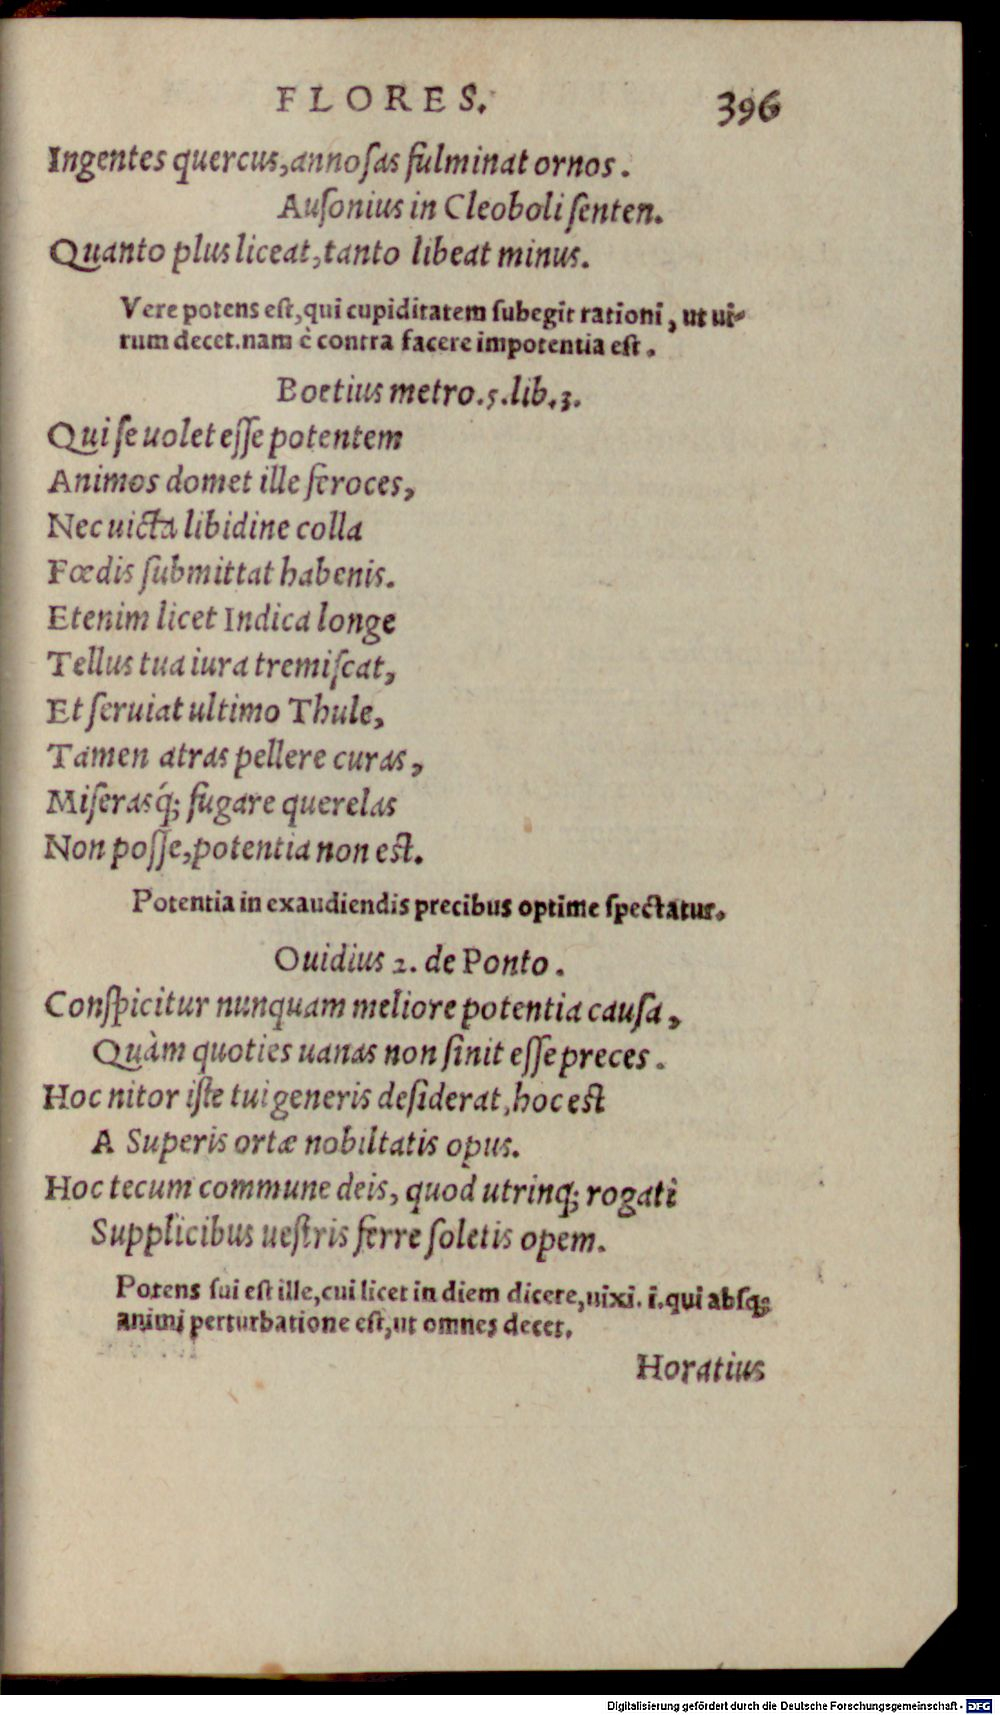 FLORES. 396
Ingentes quercus,annoſas fulminat ornos.
Auſonius in Cleoboli ſenten.
Quanto plus liceat,tanto libeat minus.
Vere potens eſt,qui cupiditatem ſubegit rationi, ut ui-
rum decet.nam è contra facere impotentia eſt.
Boetius metro.5.lib.3.
Qui ſe uolet eſſe potentem
Animos domet ille feroces,
Nec uicta libidine colla
Fœdis ſubmittat habenis.
Etenim licet Indica longe
Tellus tua iura tremiſcat,
Et ſeruiat ultimo Thule,
Tamen atras pellere curas,
Miſerasq́; fugare querelas
Non poſſe,potentia non eſt.
Potentia in exaudiendis precibus optime ſpectatur.
Ouidius 2. de Ponto.
Conſpicitur nunquam meliore potentia cauſa,
Quàm quoties uanas non ſinit eſſe preces.
Hoc nitor iſte tui generis deſiderat,hoc eſt
A Superis ortæ nobiltatis opus.
Hoc tecum commune deis, quod utrinq; rogati
Supplicibus ueſtris ferre ſoletis opem.
Potens ſui eſt ille,cui licet in diem dicere,uixi. i.qui absq;
animi perturbatione eſt,ut omnes decet.
Horatius
Digitalisierung gefördert durch die Deutsche Forschungsgemeinschaft - DFG